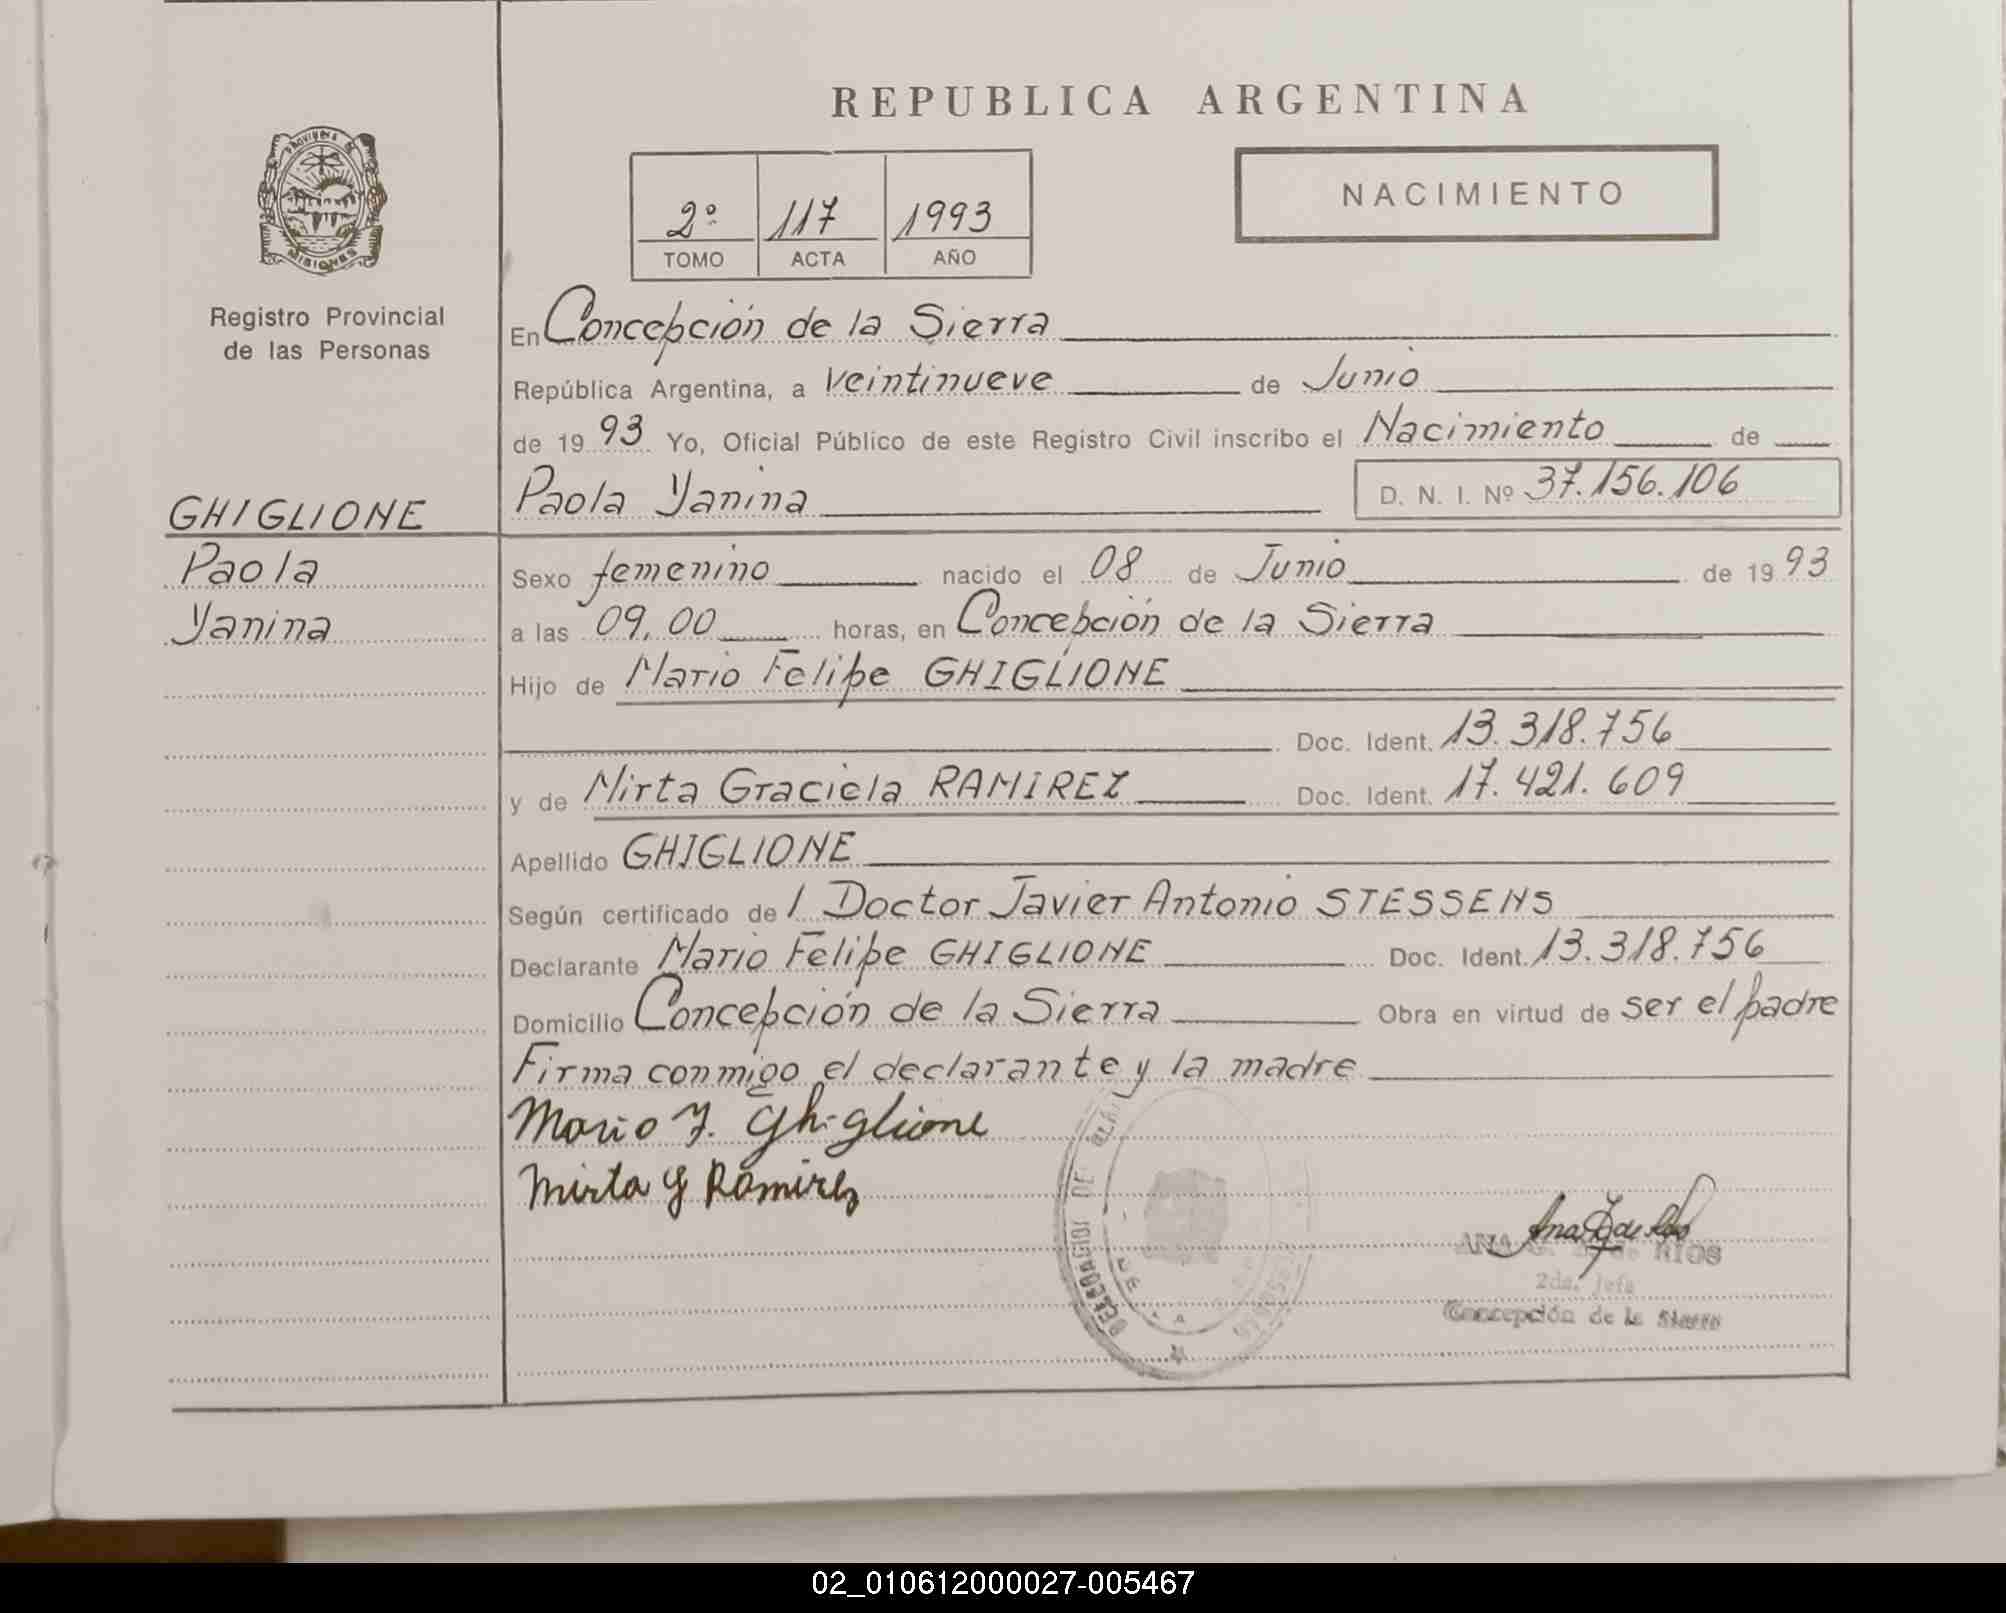 REPUBLICA ARGENTINA
PROVINCIA DE MISIONES
Registro Provincial
de las Personas
2º 117 1993
TOMO ACTA AÑO
NACIMIENTO
En Concepción de la Sierra
República Argentina, a veintinueve de Junio
de 19 93 Yo, Oficial Público de este Registro Civil inscribo el Nacimiento de
GHIGLIONE
Paola Yanina D. N. I. Nº 37.156.106
Paola
Yanina
Sexo femenino nacido el 08 de Junio de 19 93
a las 09,00 horas, en Concepción de la Sierra
Hijo de Mario Felipe GHIGLIONE
Doc. Ident. 13.318.756
y de Mirta Graciela RAMIREZ Doc. Ident. 17.421.609
Apellido GHIGLIONE
Según certificado de l Doctor Javier Antonio STESSENS
Declarante Mario Felipe GHIGLIONE Doc. Ident. 13.318.756
Domicilio Concepción de la Sierra Obra en virtud de ser el padre
Firma conmigo el declarante y la madre
Mario F. Ghiglione
Mirta G Ramirez
ANA de RIOS
2da. Jefa
Concepción de la Sierra
02_010612000027-005467